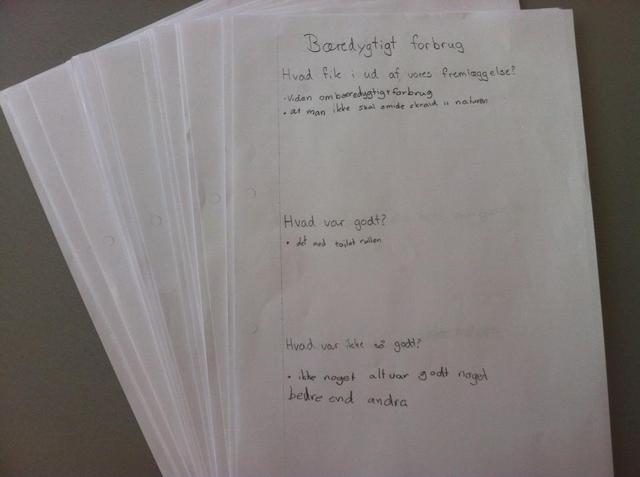 Bæredygtigt forbrug
Hvad fik i ud af vores fremlæggelse?
• Viden om bæredygtigt forbrug
• at man ikke skal smide skrald i naturen
Hvad var godt?
• det med toilet rullen
Hvad var ikke så godt?
• ikke noget alt var godt noget
bedre end andra